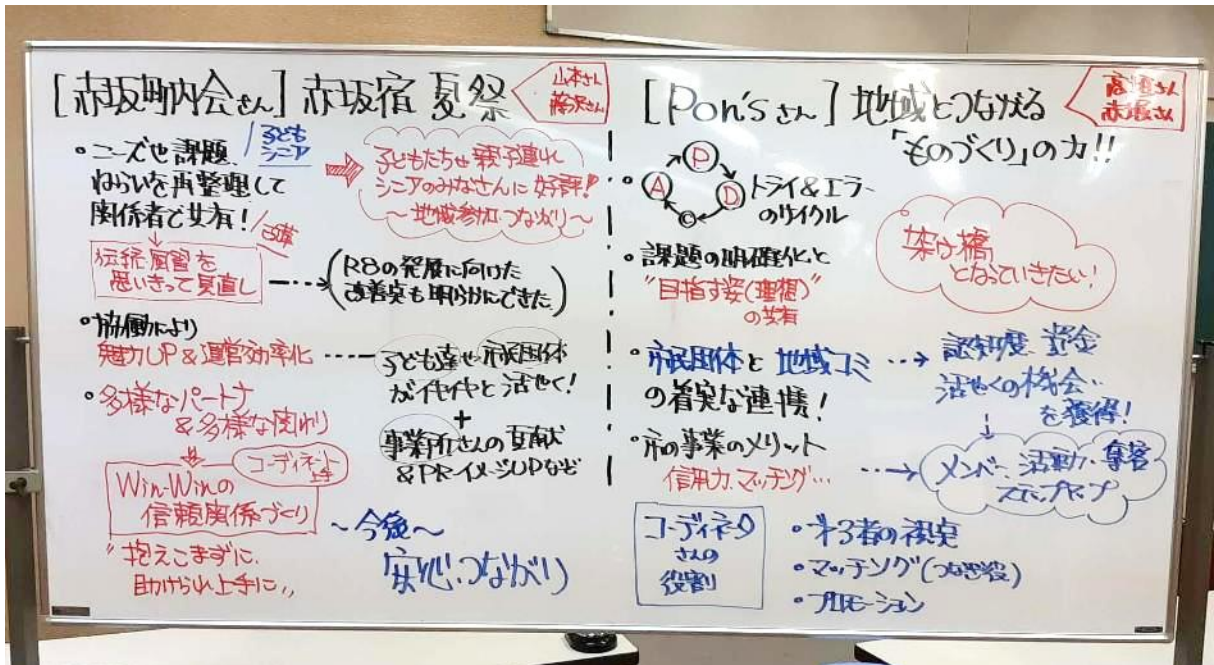 [赤坂町内会さん] 赤坂宿 夏祭
山本さん
藤沢さん
・ニーズや課題、
子ども
シニア
ねらいを再整理して
関係者で共有!
子どもたちや親子連れ
シニアのみなさんに好評!
~地域参加・つながり~
改革
伝統・風習を
思いきって見直し
(R8の発展に向けた
改善点も明らかにできた)
・協働により
魅力UP&運営効率化
子ども達や市民団体
がイキイキと活やく!
+
事業所さんの貢献
&PR・イメージUPなど
・多様なパートナー
&多様な関わり
コーディネート
Win-Winの
信頼関係づくり
"抱えこまずに、
助けられ上手に"
~今後~
安心・つながり
[Pon'sさん] 地域とつながる
「ものづくり」の力!!
赤堀さん
・P
D
C
A
トライ&エラー
のサイクル
架け橋
となっていきたい!
・課題の明確化と
"目指す姿(理想)"
の共有
・市民団体と地域コミ
の着実な連携!
認知度、資金
活やくの機会…
を獲得!
・市の事業のメリット
信用力、マッチング…
メンバー、活動力、集客
ステップアップ
コーディネータ
さんの
役割
・第3者の視点
・マッチング(つなぎ役)
・プロモーション